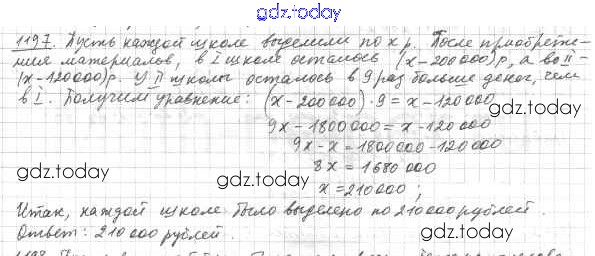 gdz.today
1197. Пусть каждой школе выделили по x р. После приобрете-
ния материалов, в I школе осталось (x-200000)р, а во II-
(x-120000)р. У II школы осталось в 9 раз больше денег, чем
в I. Получим уравнение: (x-200000)·9=x-120000
9x-1800000=x-120000
gdz.today
9x-x=1800000-120000
gdz.today
8x=1680000
gdz.today
x=210000;
Итак, каждой школе было выделено по 210000 рублей.
gdz.today
Ответ: 210000 рублей.
gdz.today
1198.
gdz.today